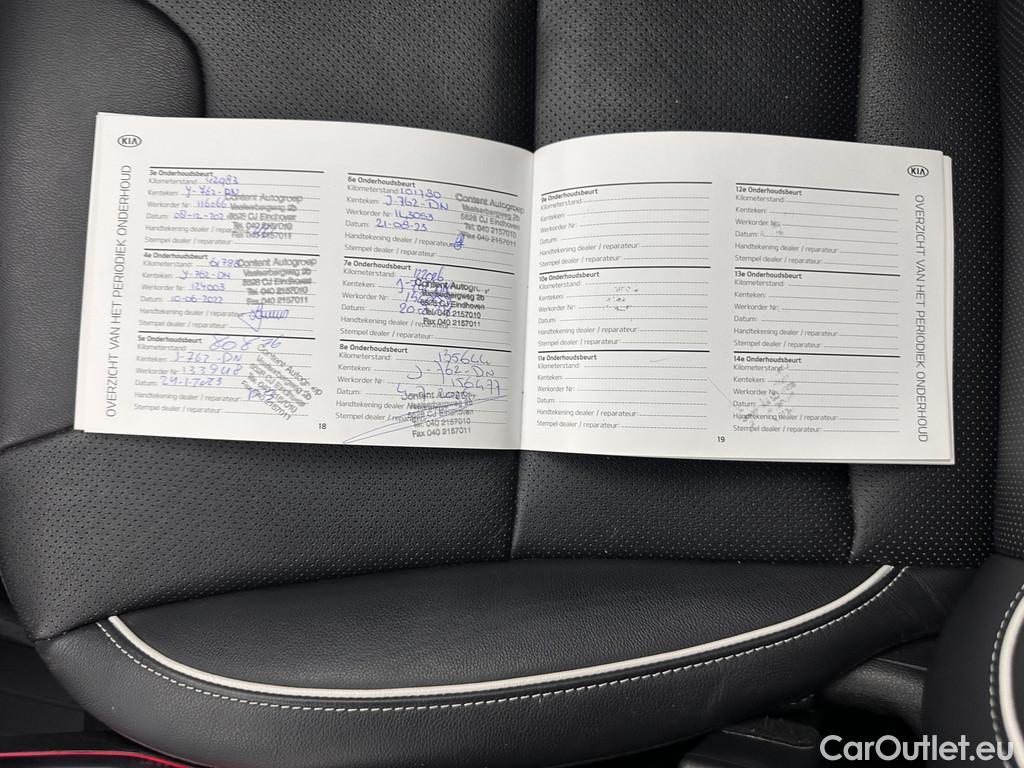 KIA
OVERZICHT VAN HET PERIODIEK ONDERHOUD
3e Onderhoudsbeurt
Kilometerstand: 42983
Kenteken: J-762-DN
Werkorder Nr: 116266
Datum: 08-12-202
Handtekening dealer / reparateur:
Stempel dealer / reparateur:
Content Autogroep
Vaalserbergweg 2b
5628 CJ Eindhoven
Tel. 040 2157010
Fax 040 2157011
4e Onderhoudsbeurt
Kilometerstand: 61798
Kenteken: J-762-DN
Werkorder Nr: 124003
Datum: 10-06-2022
Handtekening dealer /
Stempel dealer / reparateur:
Content Autogroep
Vaalserbergweg 2b
5628 CJ Eindhoven
Tel. 040 2157010
Fax 040 2157011
5e Onderhoudsbeurt
Kilometerstand: 80826
Kenteken: J-762-DN
Werkorder Nr: 133948
Datum: 24-1-2023
Handtekening dealer / reparateur:
Stempel dealer / reparateur:
Content Autogroep
Vaalserbergweg 2b
5628 CJ Eindhoven
Tel. 040 2157010
Fax 040 2157011
6e Onderhoudsbeurt
Kilometerstand: 101780
Kenteken: J-762-DN
Werkorder Nr: 143053
Datum: 21-08-23
Handtekening dealer / reparateur:
Stempel dealer / reparateur:
Content Autogroep
Vaalserbergweg 2b
5628 CJ Eindhoven
Tel. 040 2157010
Fax 040 2157011
7e Onderhoudsbeurt
Kilometerstand:
Kenteken:
Werkorder Nr:
Datum:
Handtekening dealer / reparateur:
Stempel dealer / reparateur:
Content Autogroep
Vaalserbergweg 2b
5628 CJ Eindhoven
Tel. 040 2157010
Fax 040 2157011
8e Onderhoudsbeurt
Kilometerstand: 135644
Kenteken: J-762-DN
Werkorder Nr: 156477
Datum:
Handtekening dealer
Stempel dealer / reparateur:
Content
Vaalserbergweg
5628 CJ Eindhoven
Tel. 040 2157010
Fax 040 2157011
18
9e Onderhoudsbeurt
Kilometerstand:
Kenteken:
Werkorder Nr:
Datum:
Handtekening dealer / reparateur:
Stempel dealer / reparateur:
10e Onderhoudsbeurt
Kilometerstand:
Kenteken:
Werkorder Nr:
Datum:
Handtekening dealer / reparateur:
Stempel dealer / reparateur:
11e Onderhoudsbeurt
Kilometerstand:
Kenteken:
Werkorder Nr:
Datum:
Handtekening dealer / reparateur:
Stempel dealer / reparateur:
12e Onderhoudsbeurt
Kilometerstand:
Kenteken:
Werkorder Nr:
Datum:
Handtekening dealer / reparateur:
Stempel dealer / reparateur:
13e Onderhoudsbeurt
Kilometerstand:
Kenteken:
Werkorder Nr:
Datum:
Handtekening dealer / reparateur:
Stempel dealer / reparateur:
14e Onderhoudsbeurt
Kilometerstand:
Kenteken:
Werkorder Nr:
Datum:
Handtekening dealer / reparateur:
Stempel dealer / reparateur:
19
KIA
OVERZICHT VAN HET PERIODIEK ONDERHOUD
CarOutlet.eu